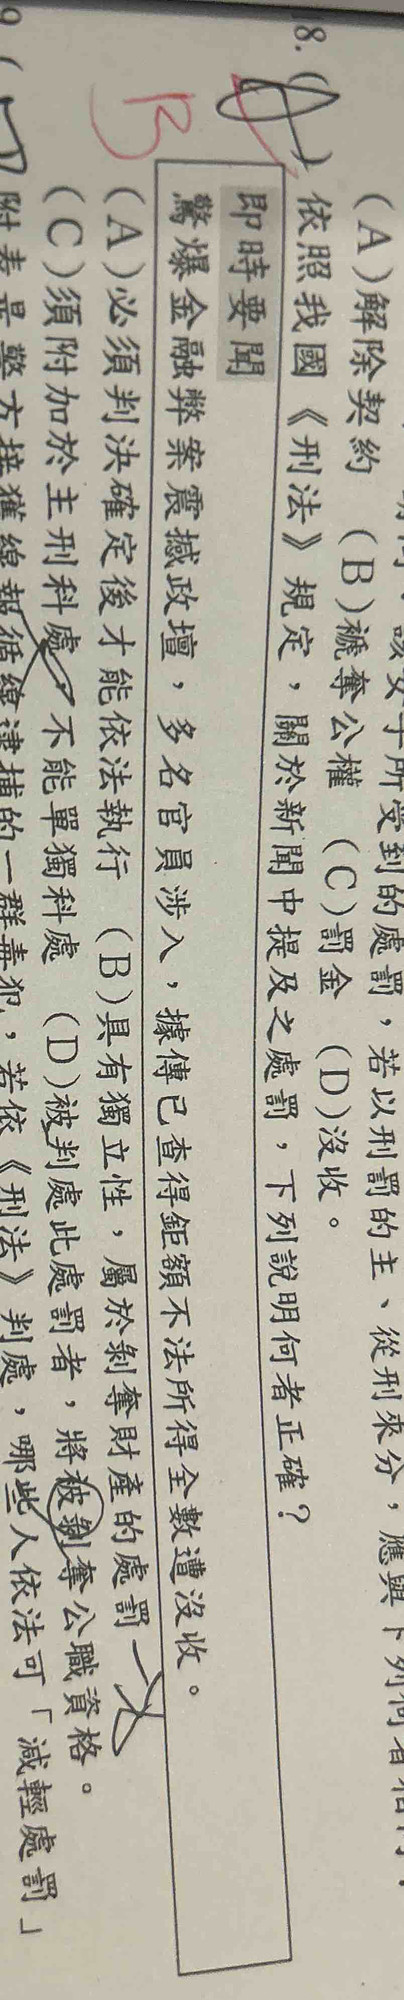 所受到的處罰，若以刑罰的主、從刑來分，應與下列何者相同？
(A)解除契約 (B)褫奪公權 (C)罰金 (D)沒收。
8. 依照我國《刑法》規定，關於新聞中提及之處罰，下列說明何者正確？
即時要聞
驚爆金融弊案震撼政壇，多名官員涉入，據傳已查得鉅額不法所得全數遭沒收。
B
(A)必須判決確定後才能依法執行 (B)具有獨立性，屬於剝奪財產的處罰
(C)須附加於主刑科處，不能單獨科處 (D)被判處此處罰者，將被剝奪公職資格。
9. 附表是警方接獲線報循線逮捕的一群毒犯，若依《刑法》判處，哪些人依法可「減輕處罰」